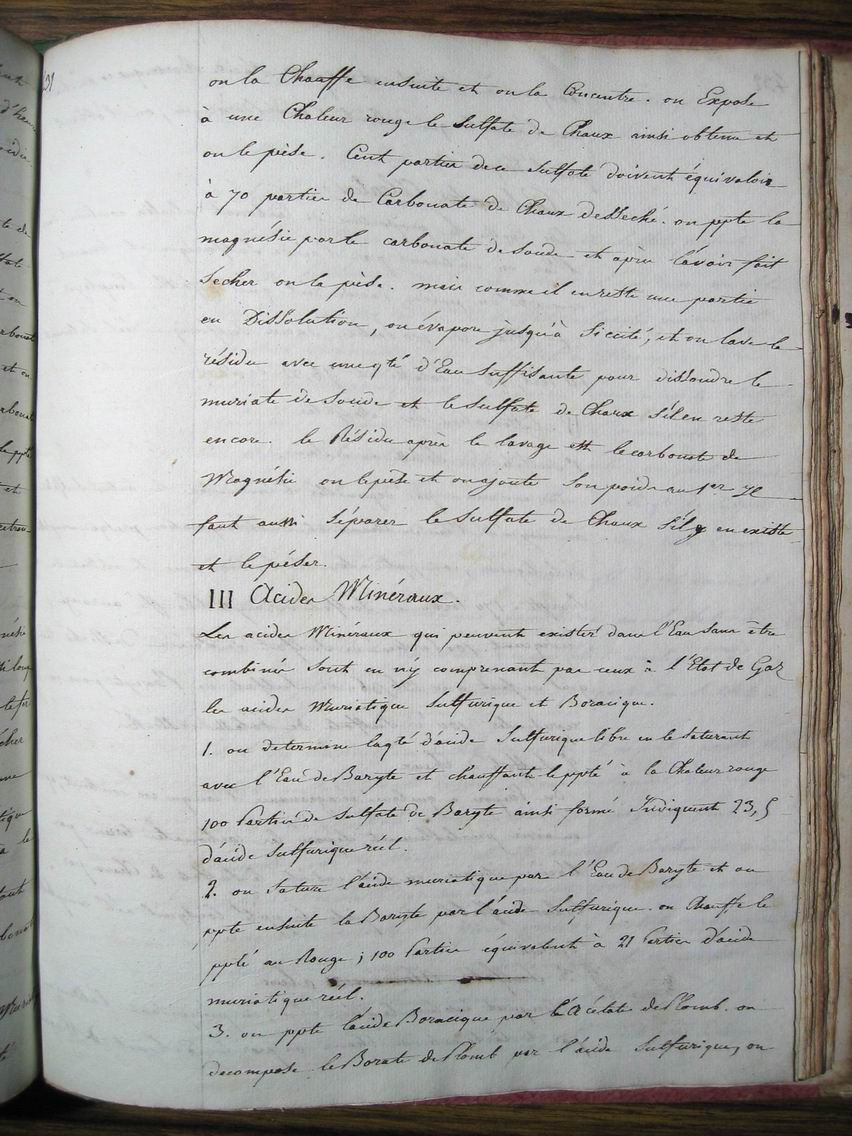 on la Chauffe ensuite et on la Concentre. on Expose
à une Chaleur rouge le Sulfate de Chaux ainsi obtenu et
on le pèse. Cent partier de ce Sulfate doivent équivaloir
à 70 partier de Carbonate de Chaux desséché. on ppte la
magnésie par le carbonate de soude et après l'avoir fait
Sécher on la pèse. mais comme il en reste une partie
en Dissolution, on évapore jusqu'à Siccité, et on lave le
résidu avec une qté d'Eau Suffisante pour dissoudre le
muriate de Soude et le Sulfate de Chaux s'il en reste
encore. le Résidu après le lavage est le carbonate de
Magnésie on le pèse et on ajoute son poids au 1er Il
faut aussi Séparer le Sulfate de Chaux s'il y en existe
et le péser.
III Acides Minéraux.
Les acides Minéraux qui peuvent exister dans l'Eau sans être
combinés Sont en n'y comprenant pas ceux à l'Etat de Gaz
les acides Muriatique Sulfurique et Boracique.
1. on determine la qté d'acide Sulfurique libre en le Saturant
avec l'Eau de Baryte et chauffant le ppté à la Chaleur rouge
100 Parties de Sulfate de Baryte ainsi formé Indiquent 23,5
d'acide Sulfurique réel.
2. on Sature l'acide muriatique par l'Eau de Baryte et on
ppte ensuite la Baryte par l'acide Sulfurique. on Chauffe le
ppté au Rouge; 100 Parties équivalent à 21 Parties d'acide
muriatique réel.
3. on ppte l'acide Boracique par l'acétate de Plomb. on
decompose le Borate de Plomb par l'acide Sulfurique, on